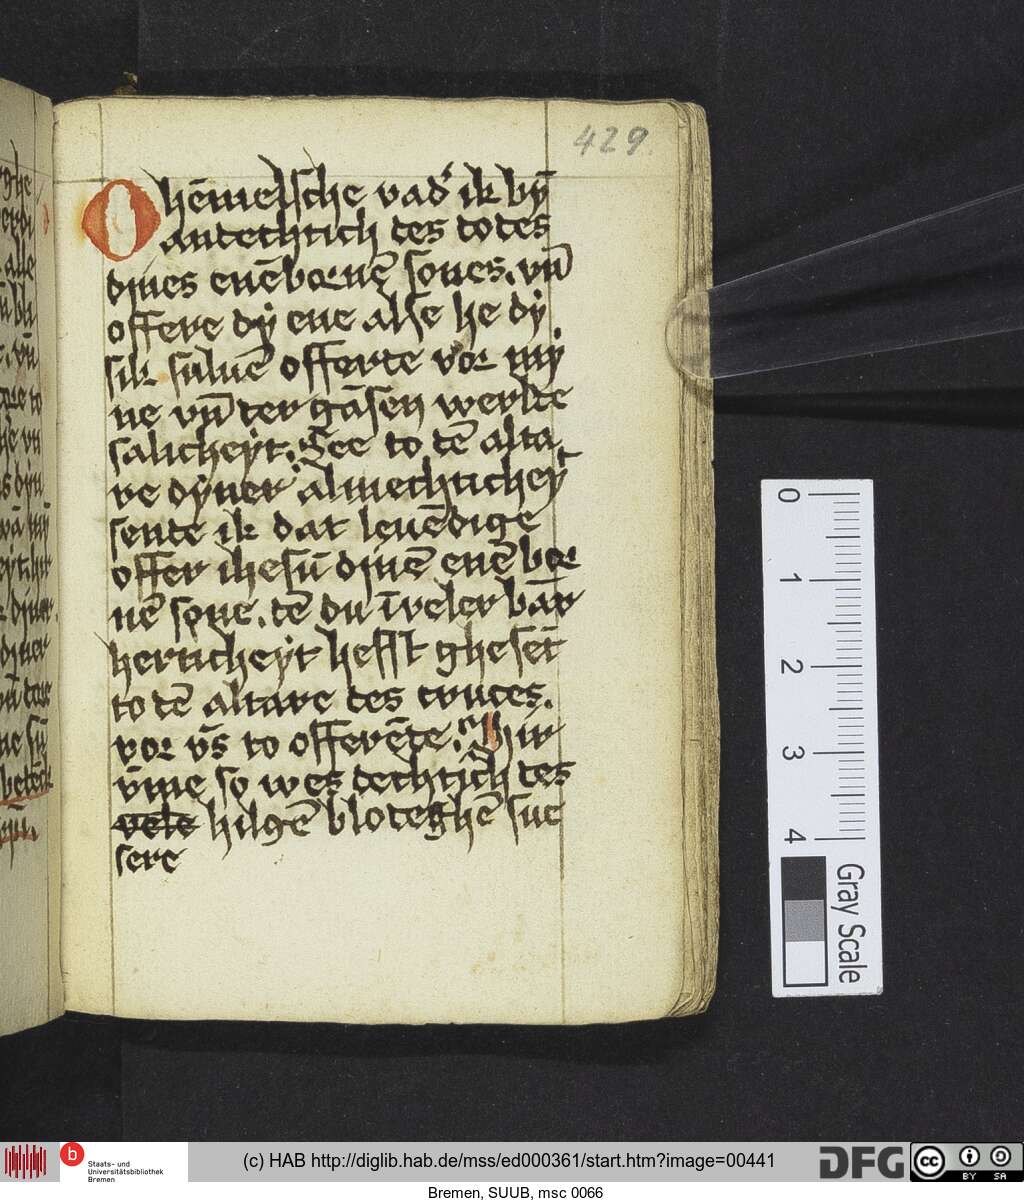 429
O hēmelsche vad' ik bȳ
andechtich des dodes
dines enēbornē sones. vn̄
offere dy ene alse he dy
sik suluē offerte vor my
ne vn̄ der gāsen werlde
salicheyt. See to dē alta
re dyner almechticheyt
sende ik dat leuēdige
offer ihesū dinē enē bor
nē sone. dē du
herticheyt hefft gheset
to dē altare des cruces.
vor v̄s to offerēde. Hir
v̄me so wes dechtich des
vele hilgē blodeghē sue
sere
0 1 2 3 4
Gray Scale
b
Staats- und
Universitätsbibliothek
Bremen
(c) HAB http://diglib.hab.de/mss/ed000361/start.htm?image=00441
DFG
cc BY SA
Bremen, SUUB, msc 0066